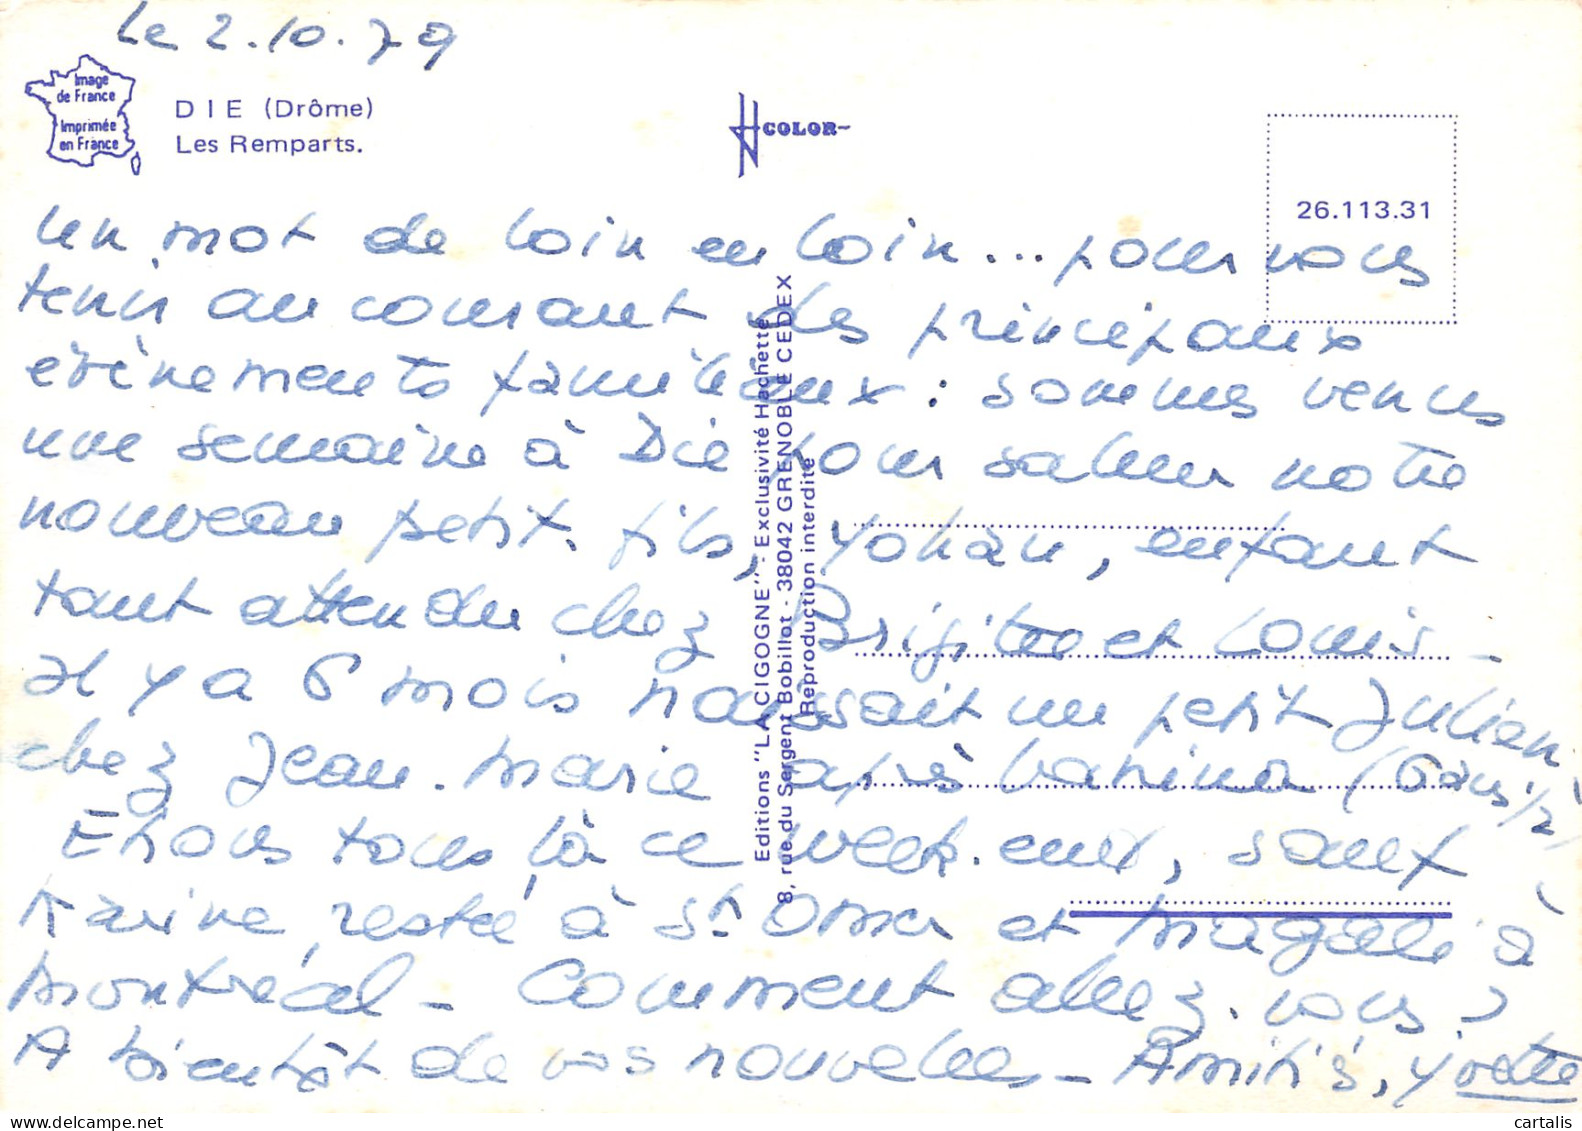 Le 2.10.79
Image
de France
Imprimée
en France
DIE (Drôme)
Les Remparts.
COLOR
26.113.31
Un mot de loin en loin... pour vous
tenir au courant des principaux
évènements familiaux : sommes venus
une semaine à Die pour saluer notre
nouveau petit-fils, Yohan, enfant
tant attendu chez Brigitte et Louis -
Il y a 6 mois naissait un petit Julien
chez Jean-Marie après Vanina (6 ans 1/2)
Etions tous là ce week-end, sauf
Karine, restée à St Omer et Magali à
Montréal - Comment allez-vous ?
A bientôt de vos nouvelles - Amitiés, Yvette
Editions "LA CIGOGNE" - Exclusivité Hachette
8, rue du Sergent Bobillot - 38042 GRENOBLE CEDEX
Reproduction interdite
cartalis